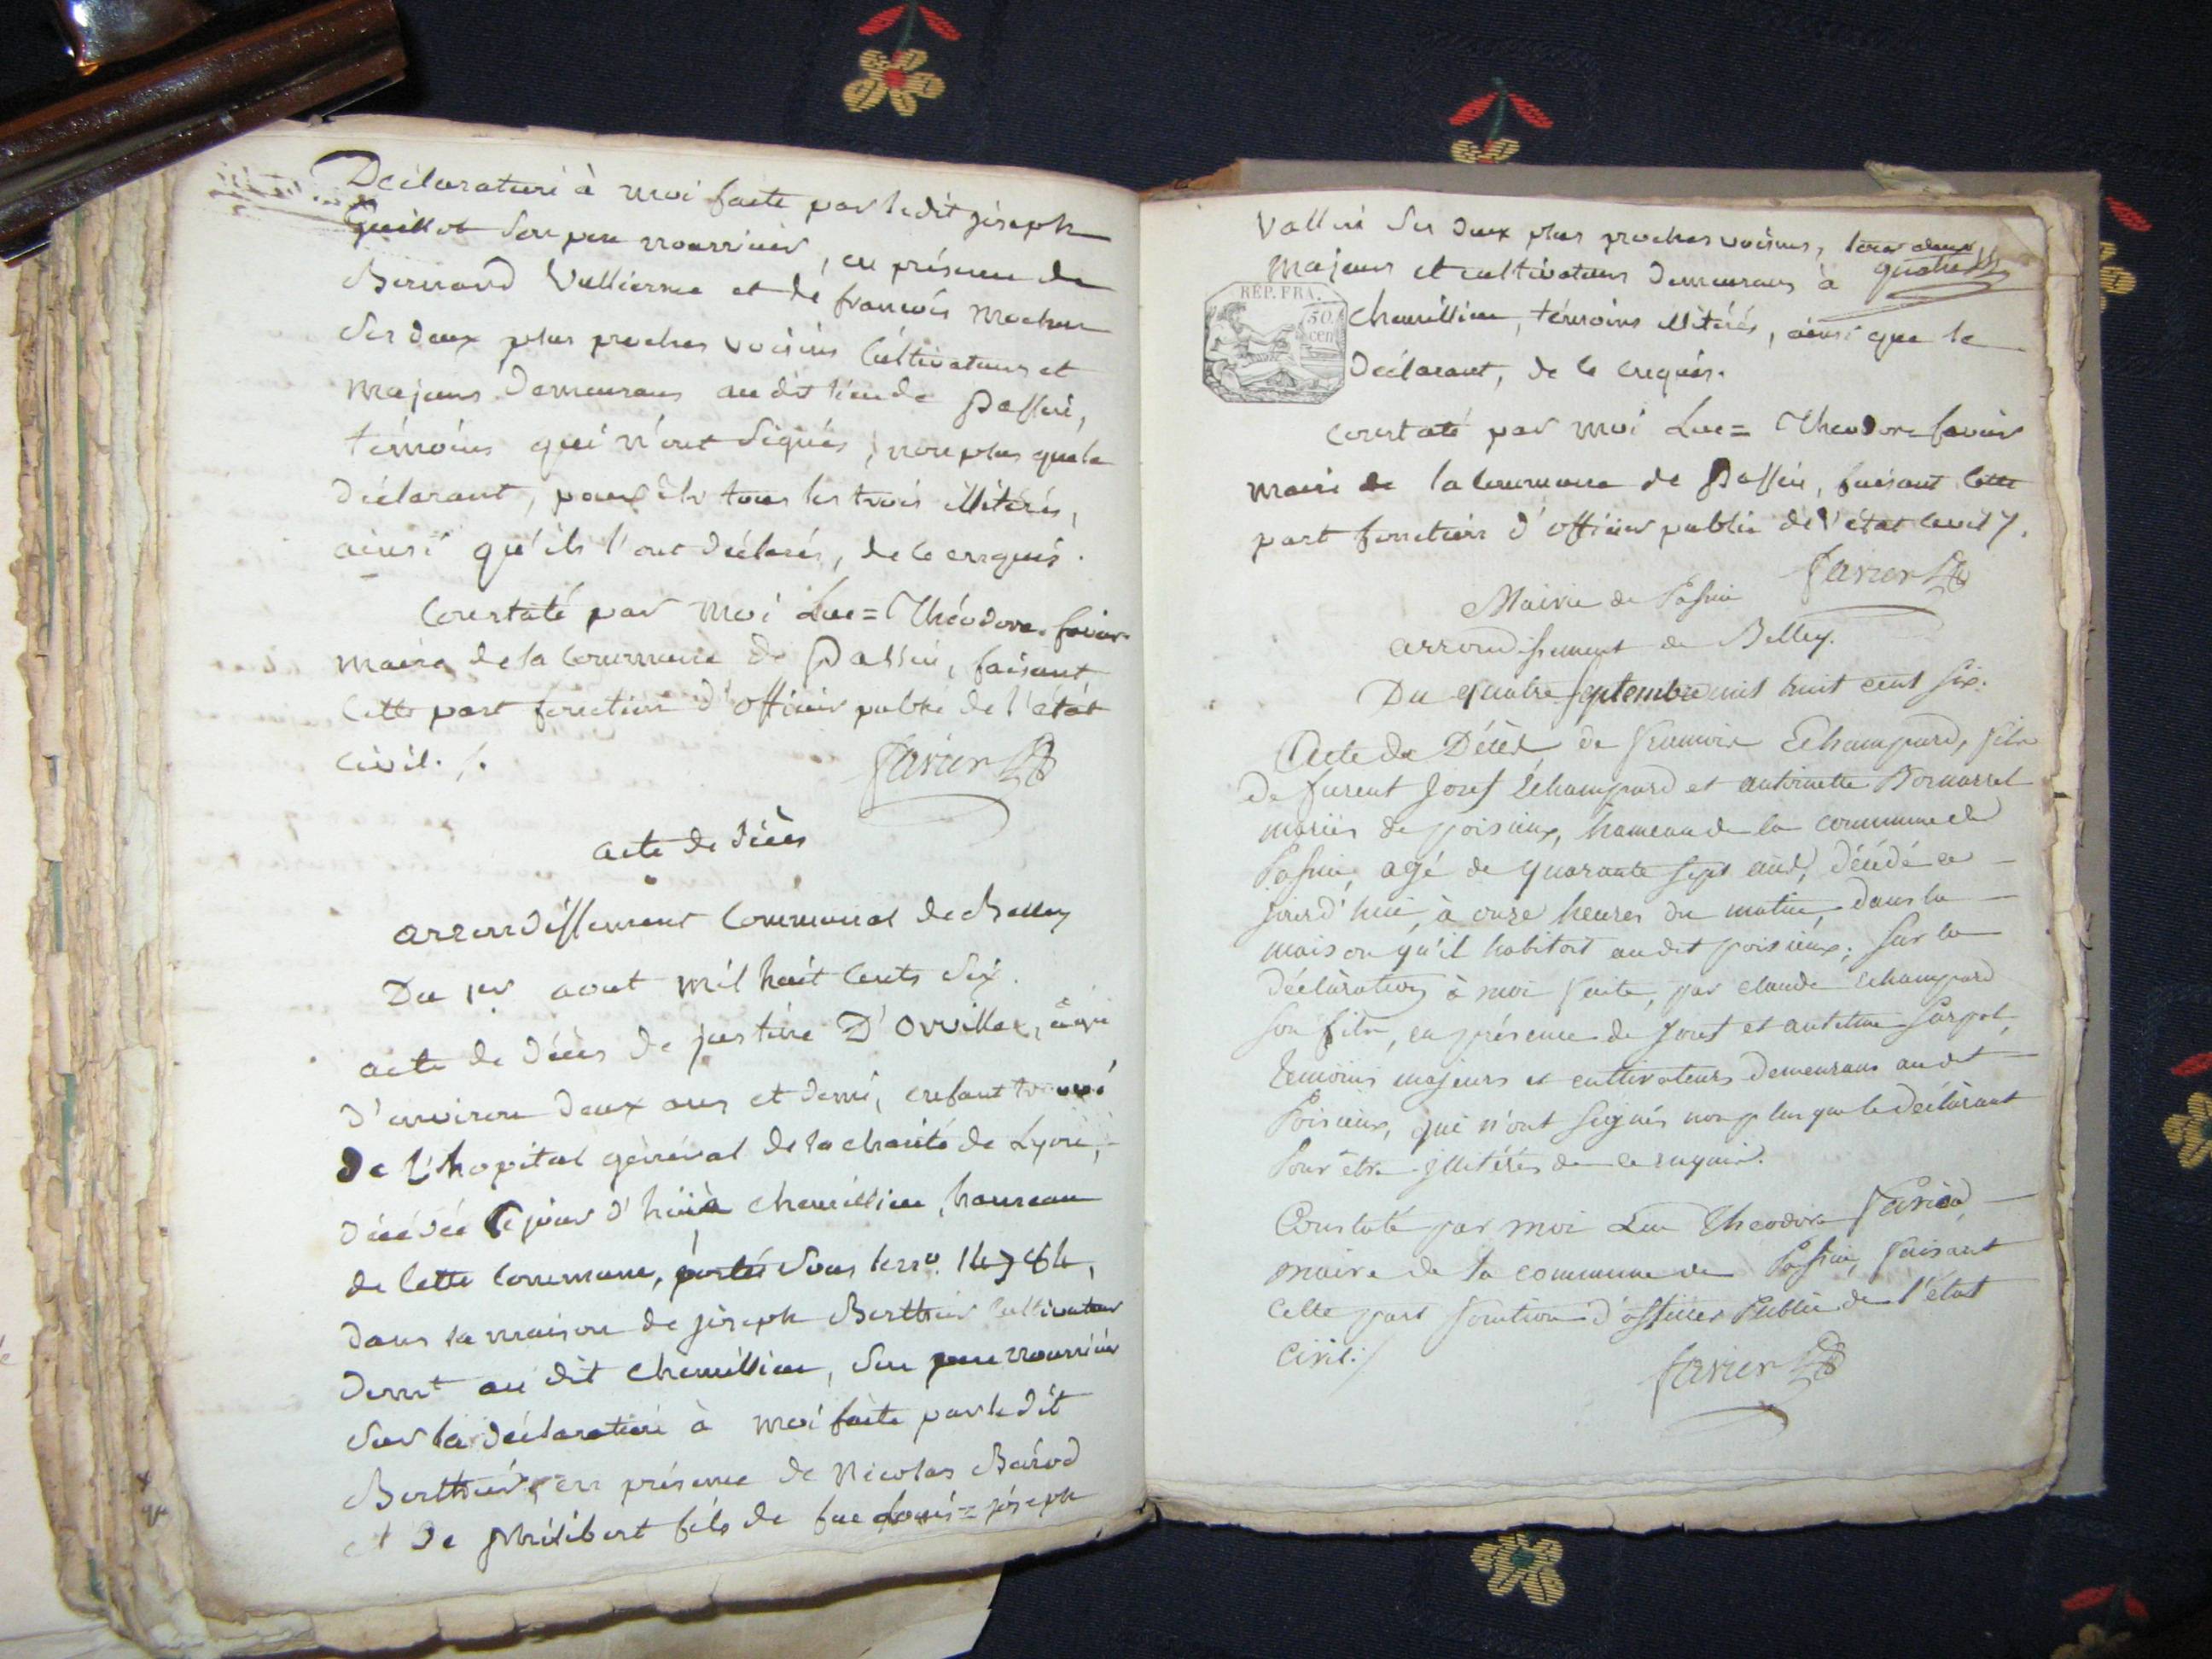 Déclaration à moi faite par ledit joseph
Guillot son père nourricier, en présence de
Bernand Vullierme et de françois Mochon
ses deux plus proches voisins Cultivateurs et
Majeurs demeurans au dit lieu de Passin,
témoins qui n'ont signés, non plus que le
déclarant, pour être tous les trois illitérés,
ainsi qu'ils l'ont déclarés, de ce enquis.
Constaté par Moi Luc=Théodore favier
maire de la Commune de Passin, faisant
Cette part fonction d'officier public de l'état
Civil. /.
favier
acte de décès
arrondissement Communal de Belley
Du 1er aout mil huit Cents Six.
acte de décès de justine D'Orvillex, âgée
d'environ deux ans et demi, enfant trouvé
De L'hopital général de la charité de Lyon,
décédée Cejourd'hui à chemillieu, hameau
de Cette Commune, portée sous le no.
dans la maison de joseph Berthier Cultivateur
demt au dit chemillieu, son père nourricier
sur la déclaration à moi faite par le dit
Berthier, en présence de Nicolas
et de philibert fils de feu Louis=joseph
Vallin ses deux plus proches voisins, tous deux
quatre
Majeurs et cultivateurs demeurans à
REP. FRA.
50.
cen
chemillieu, témoins illitérés, ainsi que le
Déclarant, de ce enquis.
Constaté par Moi Luc=Théodore favier
maire de la Commune de Passin, faisant Cette
part fonction d'officier public de l'état Civil /.
favier
Mairie de Passin
arrondissement de Belley.
Du quatre septembre mil huit cent six.
Acte de Décès de francois Echampard, fils
de furent Josef Echampard et antoinette Bornarel
mariés de poisieux, hameau de la commune de
Passin, agé de quarante sept ans, décédé ce
jourd'hui, à onze heures du matin, dans la
maison qu'il habitoit audit poisieux, sur la
déclaration à moi faite, par claude Echampard
son fils, en présence de Josef et antelme
témoins majeurs et cultivateurs demeurans audt
Poisieux, qui n'ont signés non plus que le déclarant
Pour être illitérés de ce enquis.
Constaté par moi Luc Theodore Favier,
maire de la commune de Passin, faisant
cette part fonction d'officier Public de l'état
Civil. /
favier